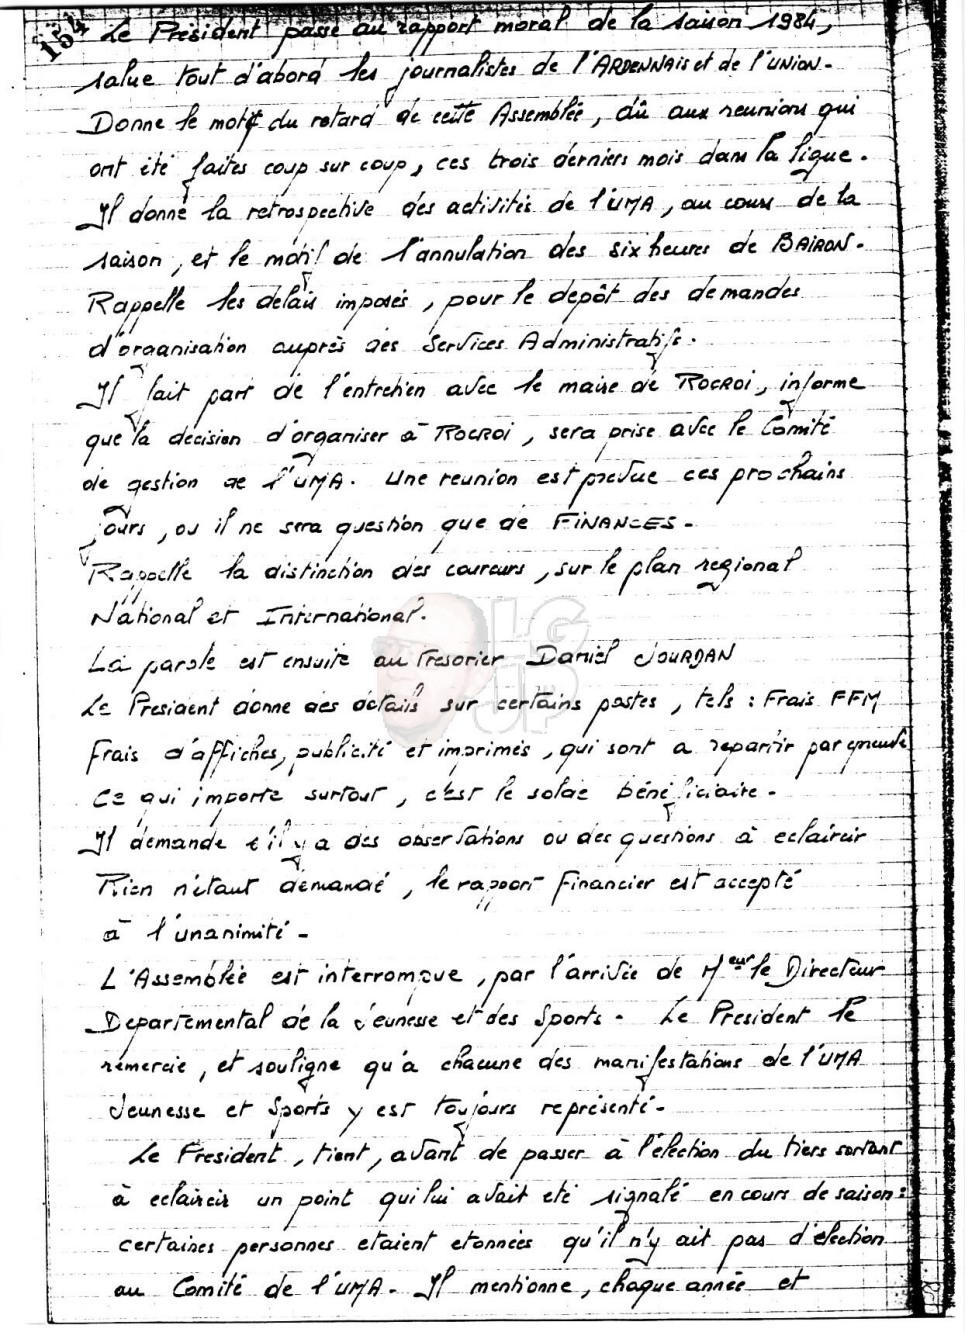 164
Le Président passe au rapport moral de la saison 1984,
salue tout d'abord les journalistes de l'ARDENNAIS et de l'UNION.
Donne le motif du retard de cette Assemblée, dû aux reunions qui
ont été faites coup sur coup, ces trois derniers mois dans la ligue.
Il donne la retrospective des activités de l'UMA, au cours de la
saison, et le motif de l'annulation des six heures de BAIRON.
Rappelle les delais imposés, pour le depôt des demandes
d'organisation auprès des Services Administratifs.
Il fait part de l'entretien avec le maire de ROCROI, informe
que la decision d'organiser à ROCROI, sera prise avec le Comité
de gestion de l'UMA. Une reunion est prevue ces prochains
jours, ou il ne sera question que de FINANCES -
Rappelle la distinction des coureurs, sur le plan regional
National et International.
La parole est ensuite au tresorier Daniel JOURDAN
Le President donne des détails sur certains postes, tels : Frais FFM
frais d'affiches, publicité et imprimés, qui sont a repartir par epreuve
Ce qui importe surtout, c'est le solde bénéficiaire.
Il demande s'il y a des observations ou des questions à eclaircir
Rien n'étant demandé, le rapport financier est accepté
à l'unanimité -
L'Assemblée est interrompue, par l'arrivée de Meur le Directeur
Departemental de la Jeunesse et des Sports. Le President le
remercie, et souligne qu'a chacune des manifestations de l'UMA
Jeunesse et Sports y est toujours représenté.
Le President, tient, avant de passer à l'élection du tiers sortant
à eclaircir un point qui lui avait eté signalé en cours de saison :
certaines personnes etaient etonnées qu'il n'y ait pas d'élection
au Comité de l'UMA. Il mentionne, chaque année et
LG
UP